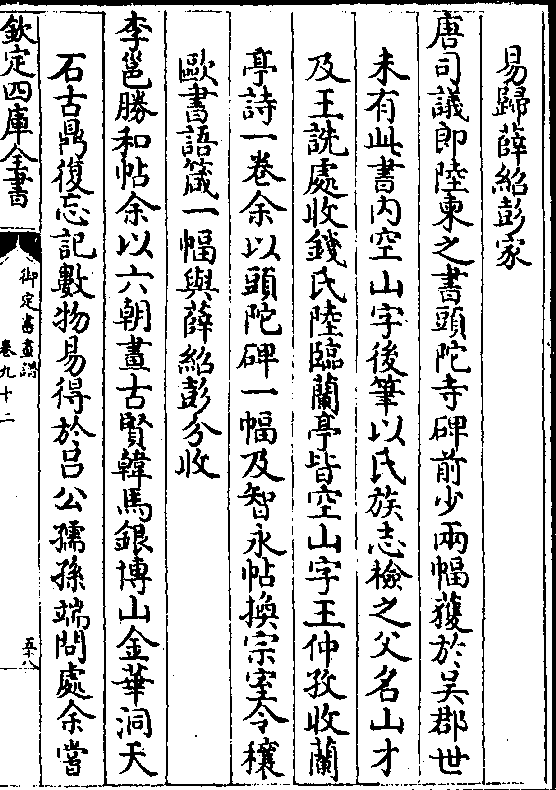 易歸薛紹彭家
唐司議郎陸柬之書頭陀寺碑前少兩幅獲於吳郡世
未有此書內空山字後筆以氏族志檢之父名山才
及王詵處收錢氏陸臨蘭亭皆空山字王仲孜收蘭
亭詩一卷余以頭陀碑一幅及智永帖換宗室令穰
歐書語箴一幅與薛紹彭分收
李邕勝和帖余以六朝畫古賢韓馬銀博山金華洞天
石古鼎復忘記數物易得於呂公孺孫端問處余嘗
欽定四庫全書
御定書畫譜
卷九十二
五十八